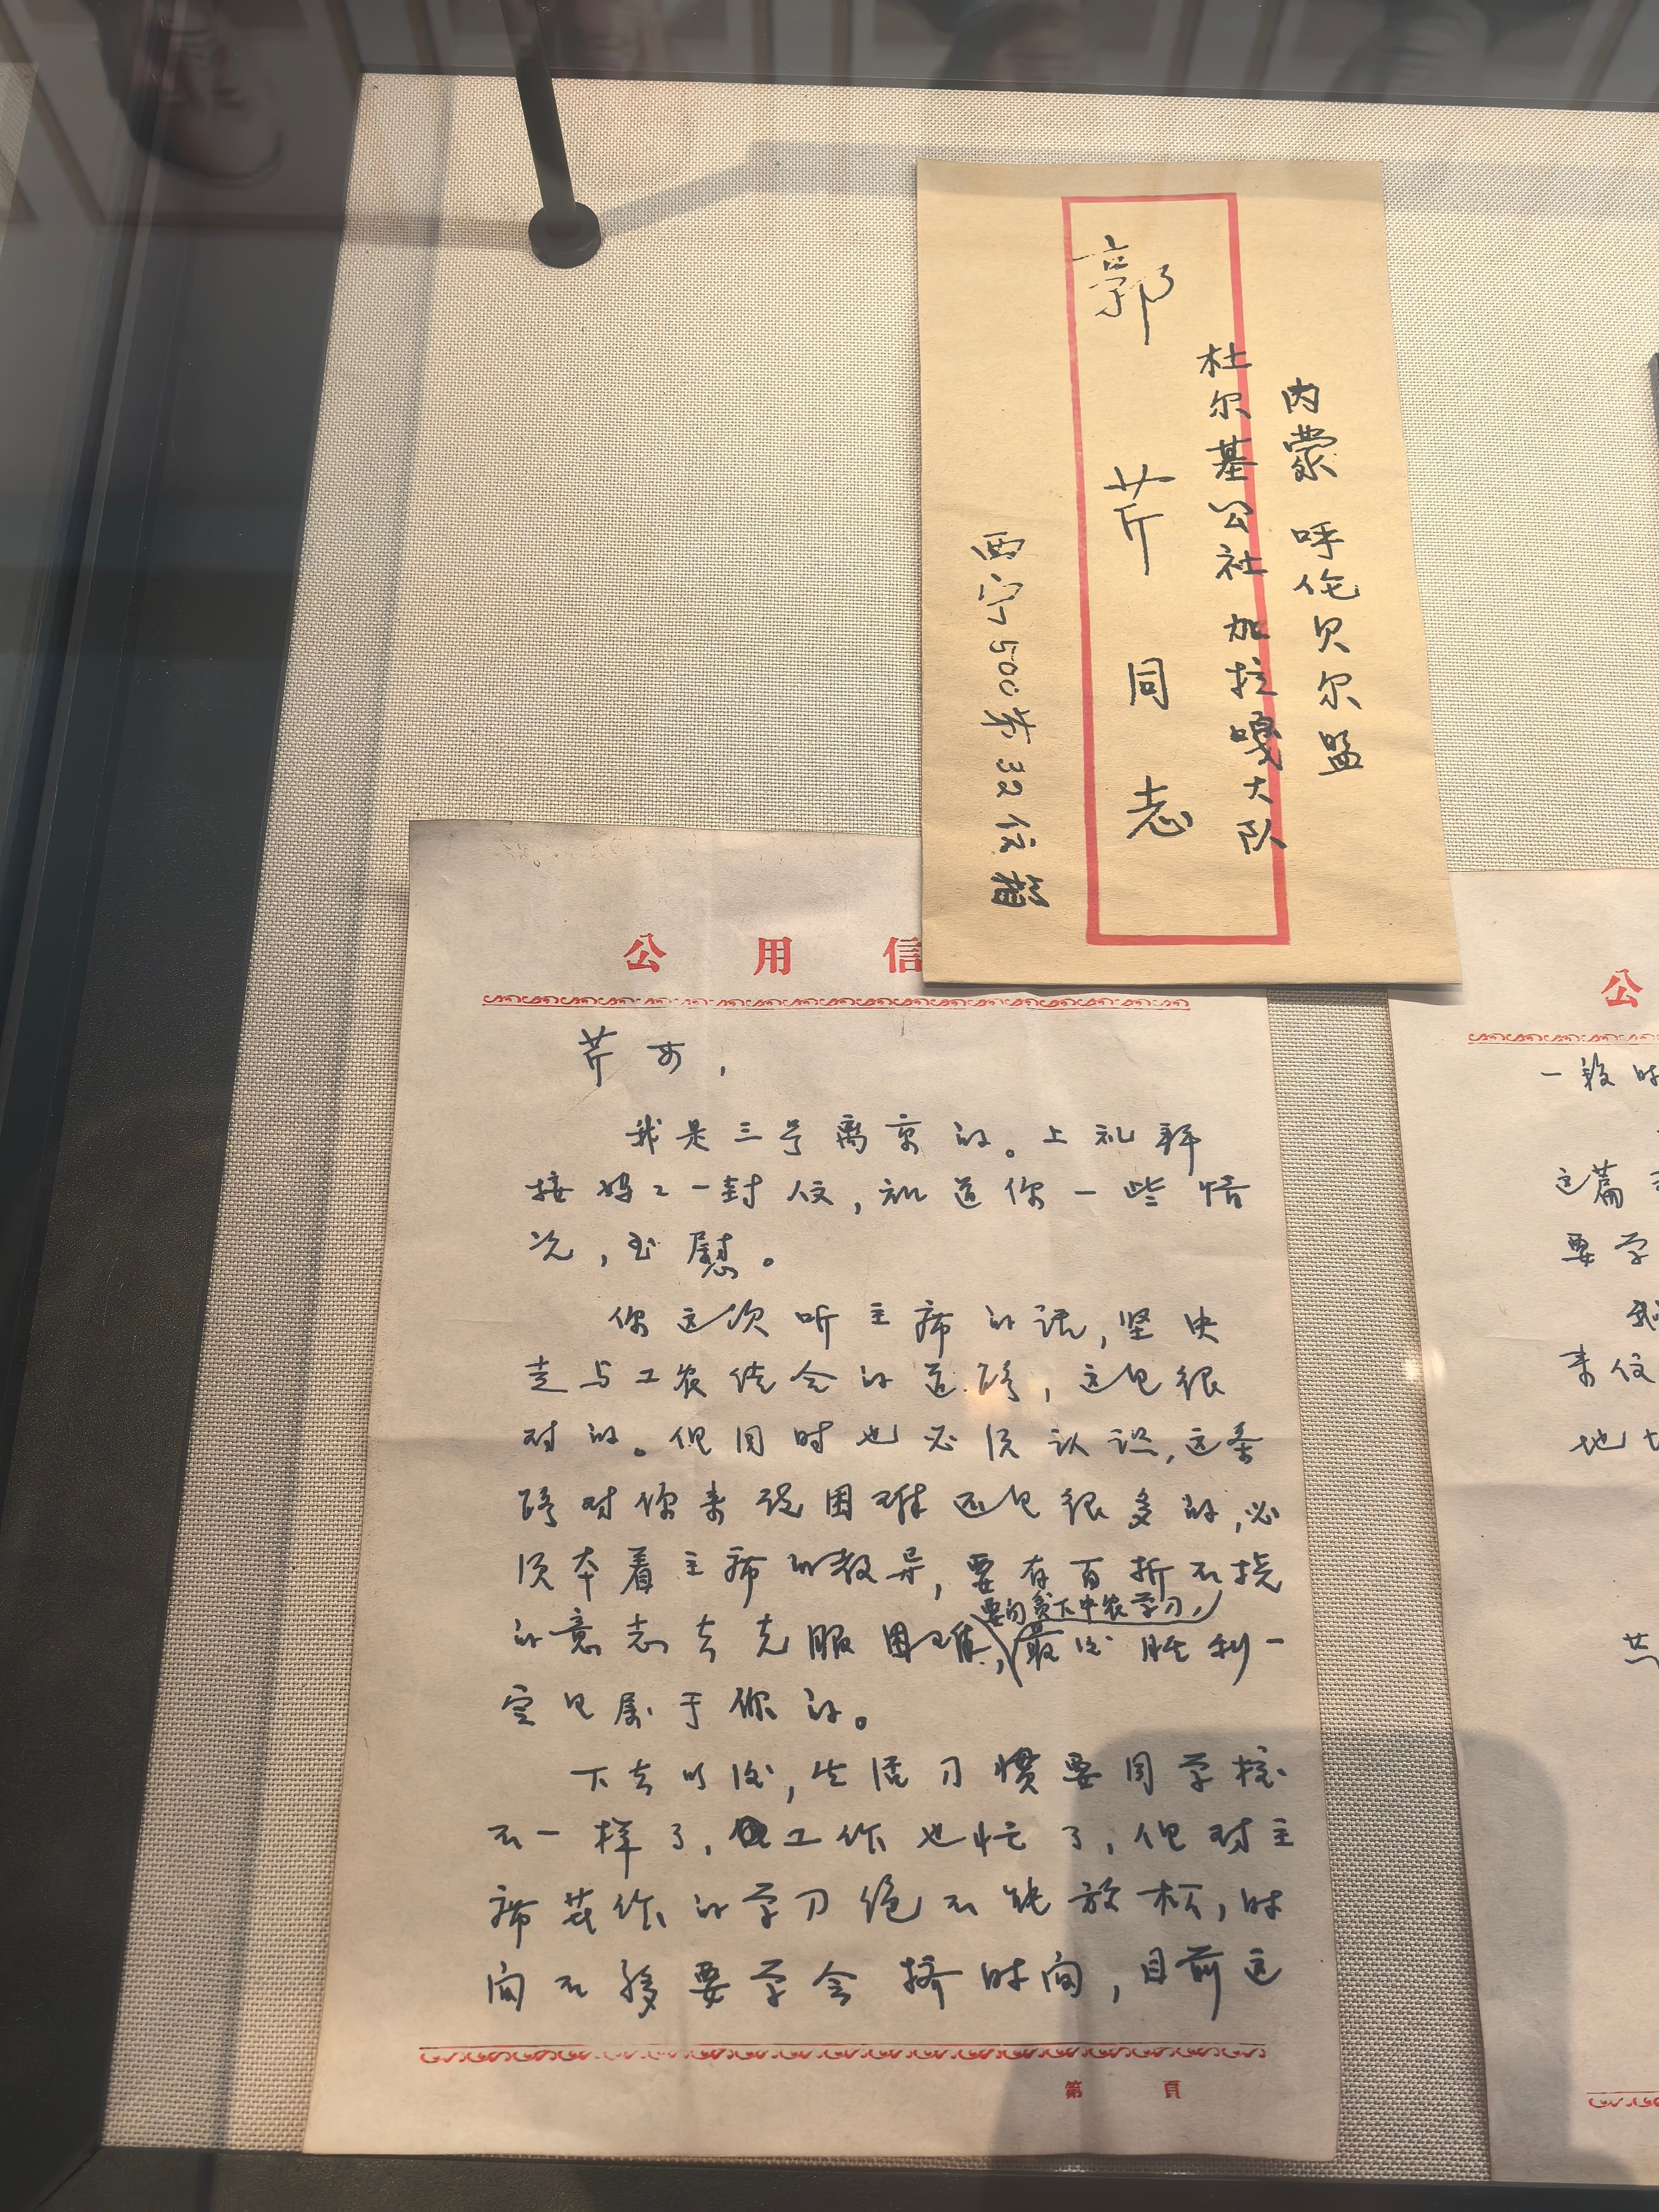 内蒙 呼伦贝尔盟
杜尔基公社 加拉嘎大队
郭芹同志
西宁500第32信箱
公用信
芹女,
我是三号离京的。上礼拜
接妈々一封信,知道你一些情
况,至慰。
你这次听主席的话,坚决
走与工农结合的道路,这是很
对的。但同时也必须认识,这条
路对你来说困难还是很多的,必
须本着主席的教导,要有百折不挠
要向贫下中农学习,
的意志去克服困难,最后胜利一
定是属于你的。
下去以后,生活习惯要同学校
不一样了,工作也忙了,但对主
席著作的学习绝不能放松,时
间不够要学会挤时间,目前这
第 頁
公
一段时
这篇
要学
我
来信
地